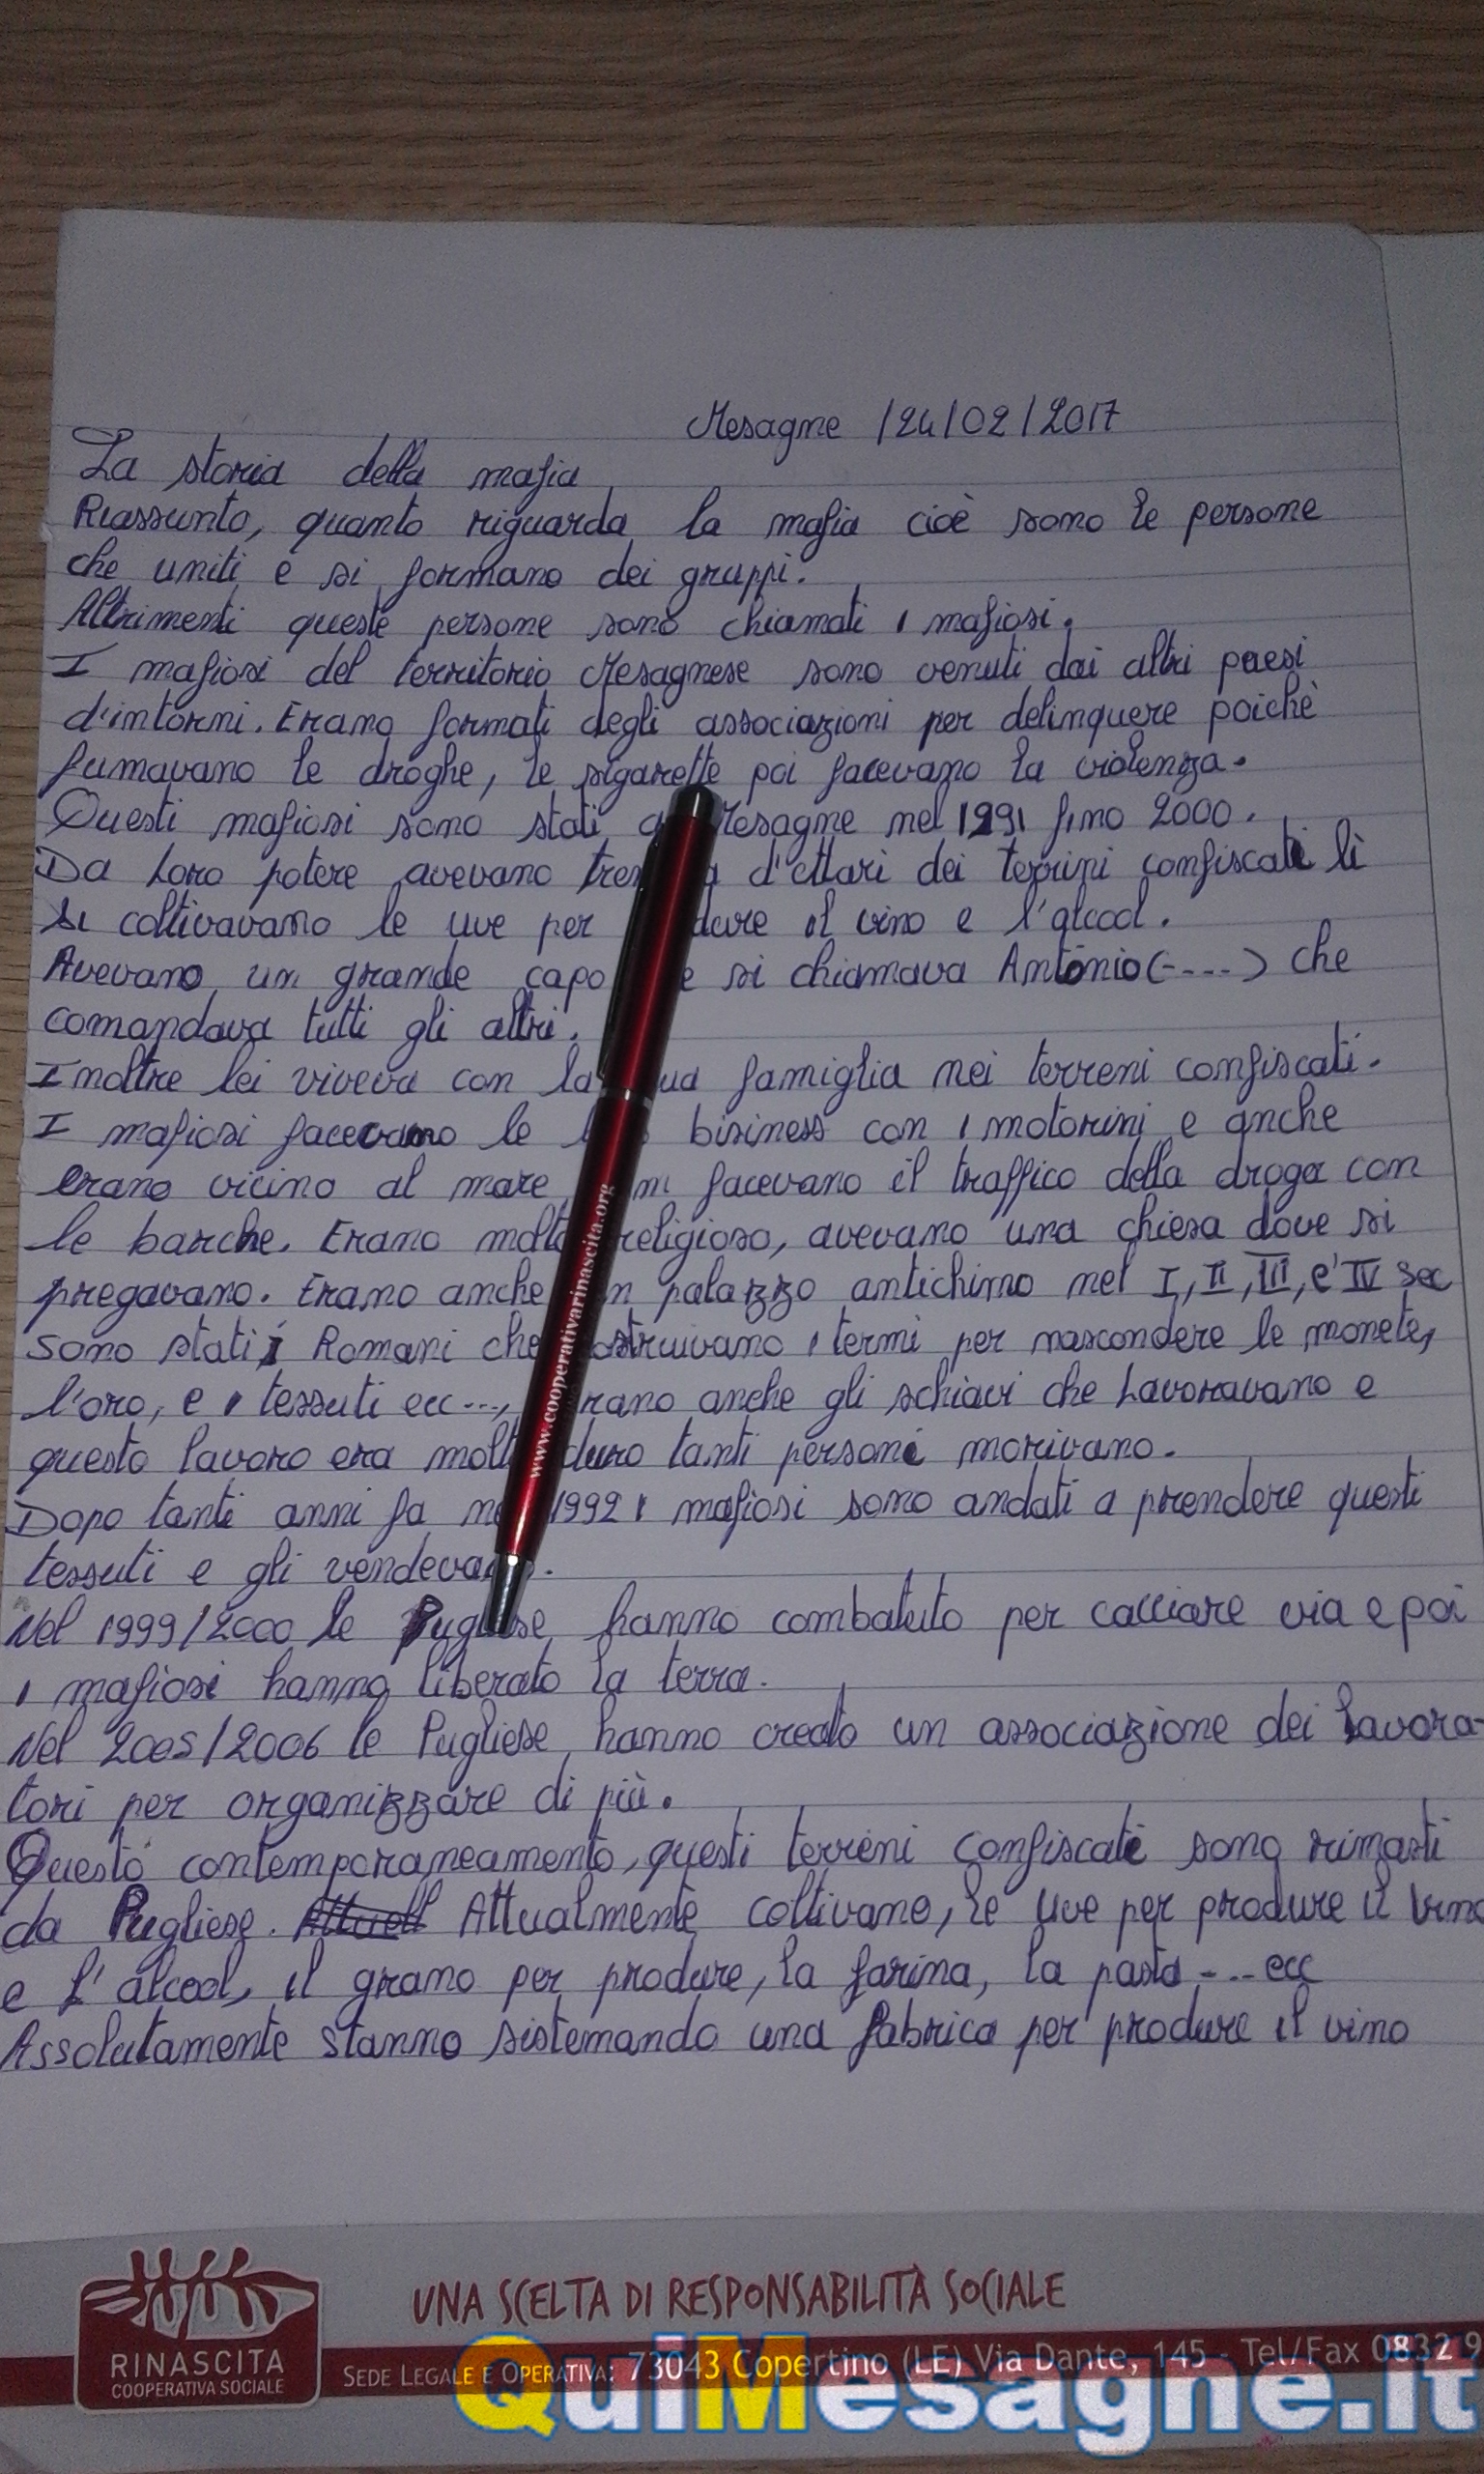 Mesagne /24/02/2017
La storia della mafia
Riassunto, quanto riguarda la mafia cioè sono le persone
che uniti e si formano dei gruppi.
Altrimenti queste persone sono chiamati i mafiosi.
I mafiosi del territorio Mesagnese sono venuti dai altri paesi
d'intorni. Erano formati degli associazioni per delinquere poichè
fumavano le droghe, le sigarette poi facevano la violenza.
Questi mafiosi sono stati a Mesagne nel 1991 fino 2000.
Da loro potere avevano d'ettari dei terrini confiscati lì
si coltivavano le uve per il vino e l'alcool.
Avevano un grande capo si chiamava Antonio (-...) che
comandava tutti gli altri.
Inoltre lei viveva con la sua famiglia nei terreni confiscati.
I mafiosi facevano le bisiness con i motorini e anche
erano vicino al mare facevano il traffico della droga con
le barche. Erano molto religioso, avevano una chiesa dove si
pregavano. Erano anche un palazzo antichimo nel I, II, III, e' IV sec
sono stati i Romani che costruivano i termi per nascondere le monete,
l'oro, e i tessuti ecc..., erano anche gli schiavi che lavoravano e
questo lavoro era molto duro tanti persone morivano.
Dopo tanti anni fa nel 1992 i mafiosi sono andati a prendere questi
tessuti e gli vendevano.
Nel 1999/2000 le Pugliese hanno combatuto per cacciare via e poi
i mafiosi hanno liberato la terra.
Nel 2005/2006 le Pugliese hanno creato un associazione dei lavora-
tori per organizzare di più.
Questo contemporaneamento, questi terreni confiscati sono rimasti
da Pugliese. Attualmente coltivano, le uve per produre il vino
e l'alcool, il grano per produre, la farina, la pasta -..ecc
Assolutamente stanno sistemando una fabrica per produre il vino
www.cooperativarinascita.org
UNA SCELTA DI RESPONSABILITÀ SOCIALE
RINASCITA
COOPERATIVA SOCIALE
SEDE LEGALE E OPERATIVA: 73043 Copertino (LE) Via Dante, 145 - Tel/Fax 0832 9
QuiMesagne.it